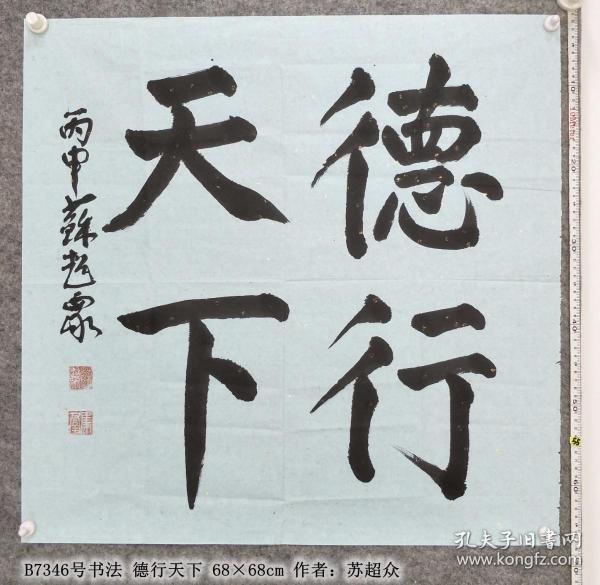 德行
天下
丙申蘇超眾
孔夫子旧書网
www.kongfz.com
B7346号书法 德行天下 68×68cm 作者：苏超众